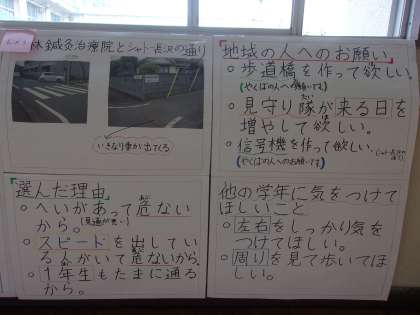 林鍼灸治療院とシャトー長沢の通り
いきなり車が出てくる
選んだ理由
○へいがあって危ない
から。(見通が悪い)
○スピードを出してい
る人がいて危ないから。
○1年生もたまに通る
から。
「地域の人へのお願い」
○歩道橋を作って欲しい
(やくばの人へのお願いです)
○見守り隊が来る日を
増やして欲しい。
○信号機を作って欲しい。
(やくばの人へのお願いです)
他の学年に気をつけて
ほしいこと
○左右をしっかり気を
つけてほしい。
○周りを見て歩いてほ
しい。